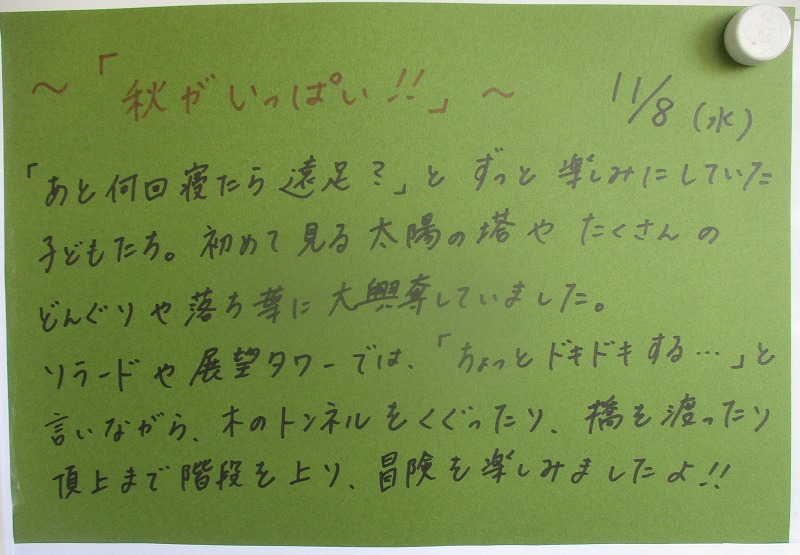 ～「秋がいっぱい!!」～ 11/8(水)
「あと何回寝たら遠足?」とずっと楽しみにしていた
子どもたち。初めて見る太陽の塔やたくさんの
どんぐりや落ち葉に大興奮していました。
ソラードや展望タワーでは、「ちょっとドキドキする…」と
言いながら、木のトンネルをくぐったり、橋を渡ったり
頂上まで階段を上り、冒険を楽しみましたよ!!